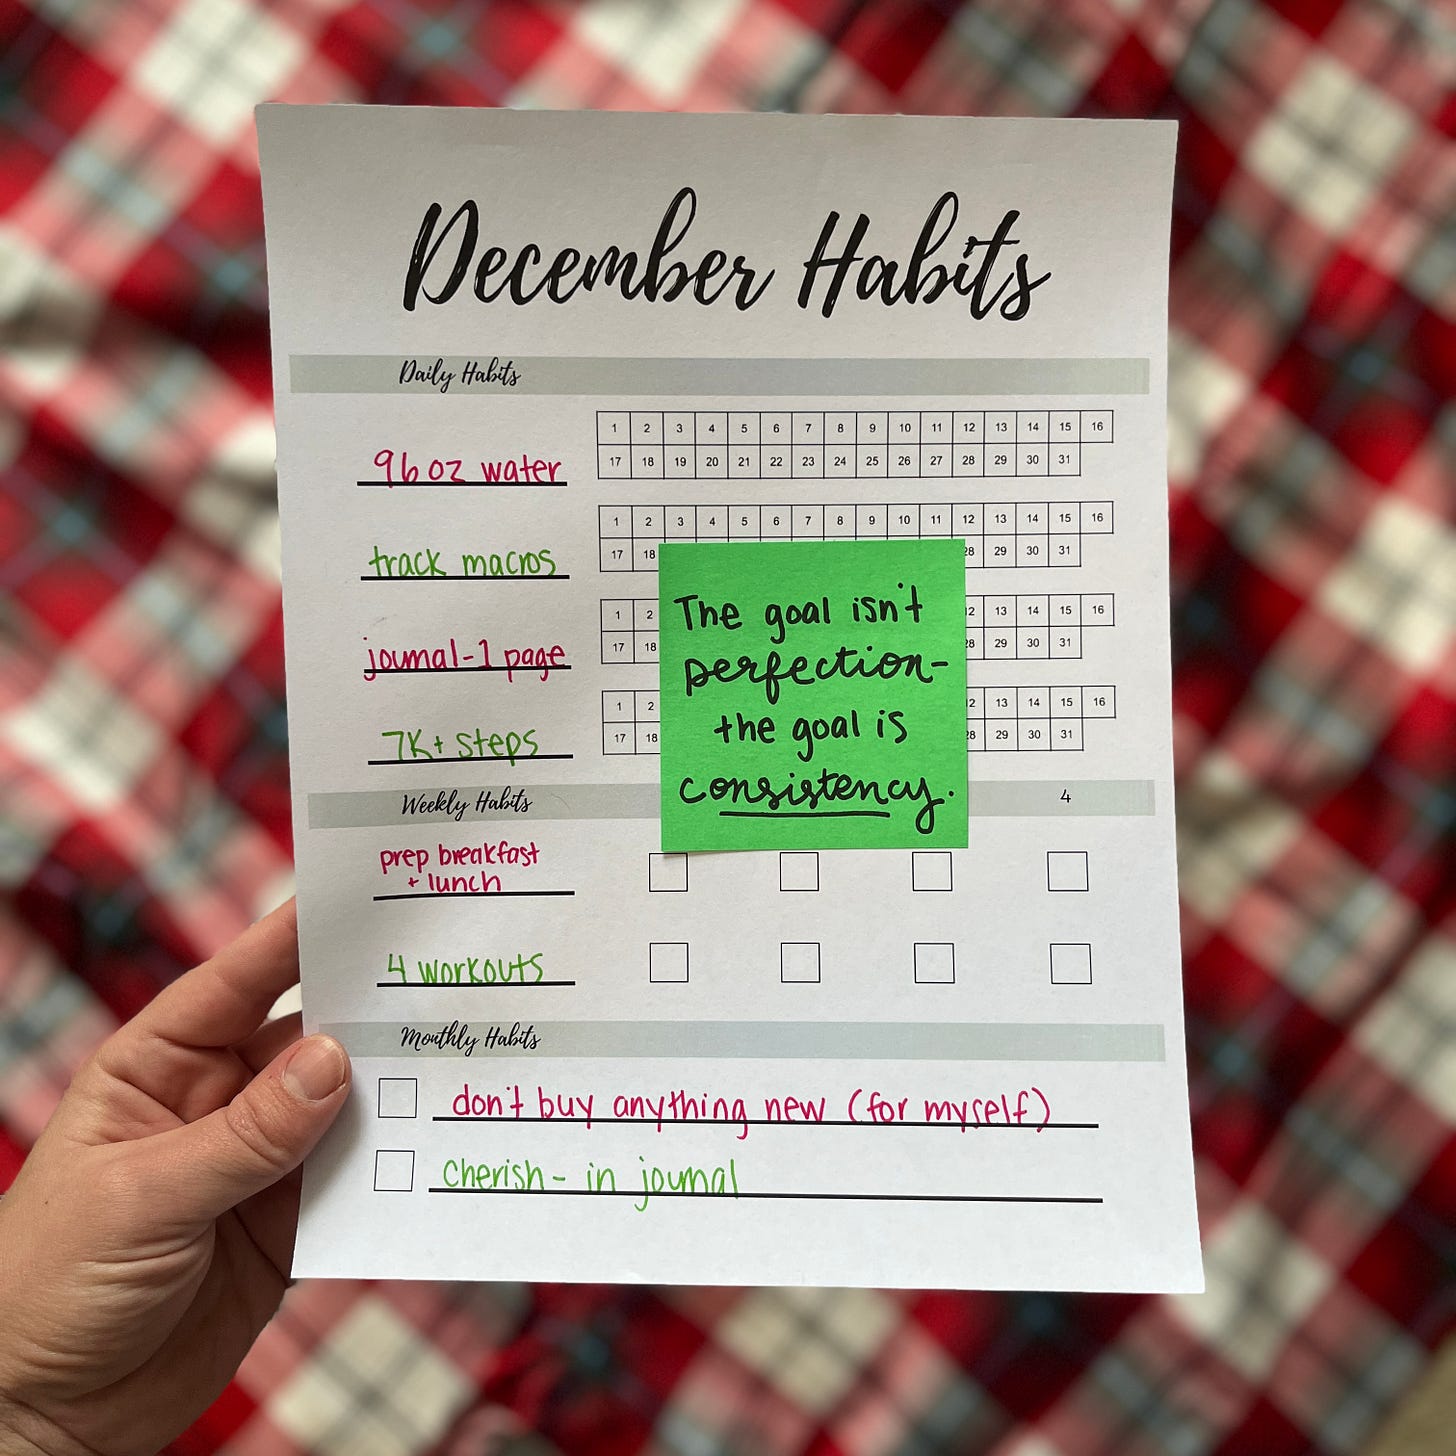 December Habits
Daily Habits
96 oz water
1 2 3 4 5 6 7 8 9 10 11 12 13 14 15 16
17 18 19 20 21 22 23 24 25 26 27 28 29 30 31
track macros
1 2 3 4 5 6 7 8 9 10 11 12 13 14 15 16
17 18 28 29 30 31
journal-1 page
1 2 12 13 14 15 16
17 18 28 29 30 31
7K+ steps
1 2 12 13 14 15 16
17 18 28 29 30 31
The goal isn't
perfection-
the goal is
consistency.
Weekly Habits 4
prep breakfast
+ lunch
4 workouts
Monthly Habits
don't buy anything new (for myself)
cherish- in journal